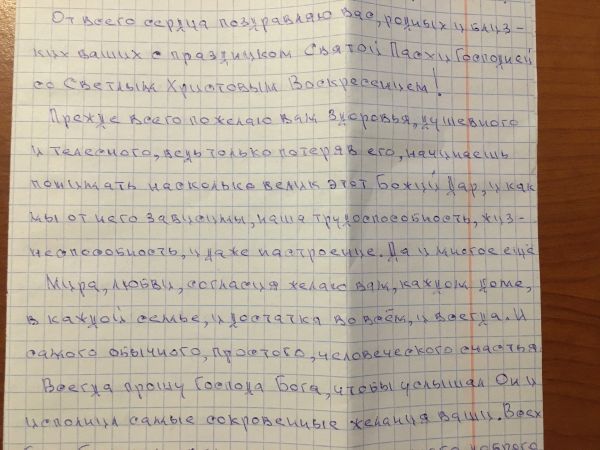 От всего сердца поздравляю Вас, родных и близ-
ких ваших с праздником Святой Пасхи Господней
со Светлым Христовым Воскресением!
Прежде всего пожелаю вам здоровья, душевного
и телесного, ведь только потеряв его, начинаешь
понимать насколько велик этот Божий Дар, и как
мы от него зависимы, наша трудоспособность, жиз-
неспособность, и даже настроение. Да и многое ещё
Мира, любви, согласия желаю вам, каждом доме,
в каждой семье, и достатка во всём, и всегда. И
самого обычного, простого, человеческого счастья
Всегда прошу Господа Бога, чтобы услышал Он и
исполнил самые сокровенные желания ваши. Всех
доброго